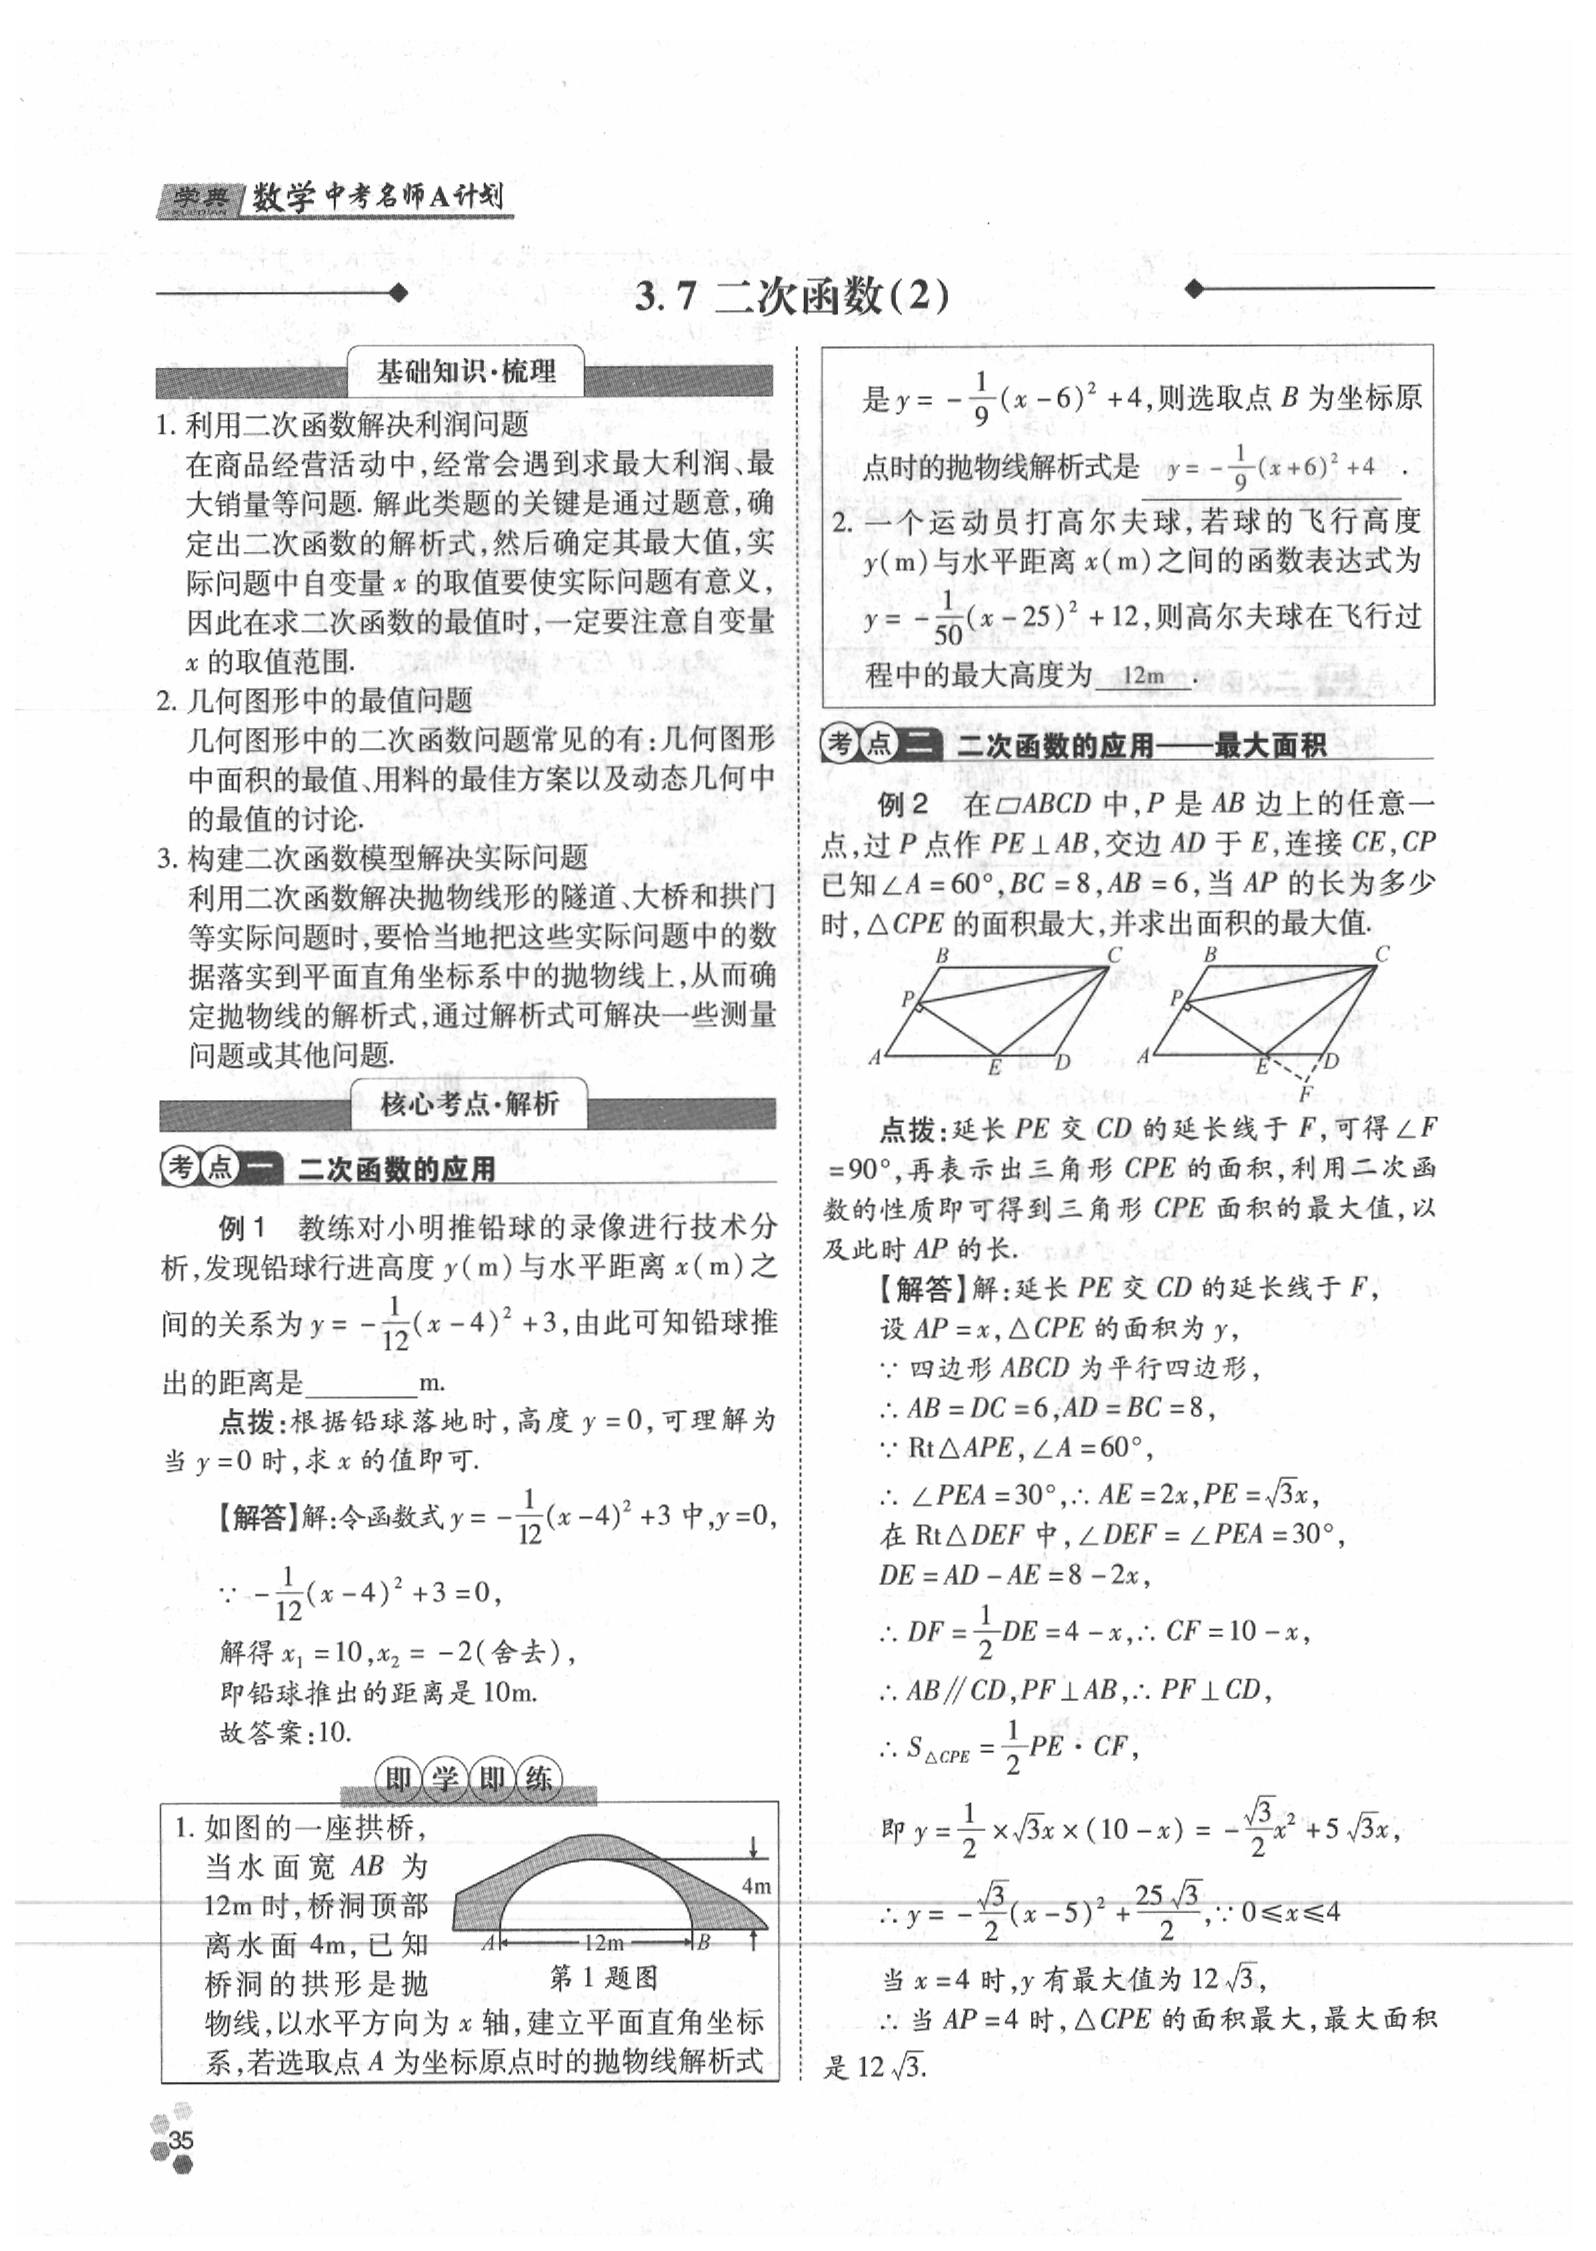 学典 数学中考名师A计划
XUEDIAN
3.7 二次函数(2)
基础知识·梳理
1. 利用二次函数解决利润问题
在商品经营活动中,经常会遇到求最大利润、最
大销量等问题. 解此类题的关键是通过题意,确
定出二次函数的解析式,然后确定其最大值,实
际问题中自变量 x 的取值要使实际问题有意义,
因此在求二次函数的最值时,一定要注意自变量
x 的取值范围.
2. 几何图形中的最值问题
几何图形中的二次函数问题常见的有:几何图形
中面积的最值、用料的最佳方案以及动态几何中
的最值的讨论.
3. 构建二次函数模型解决实际问题
利用二次函数解决抛物线形的隧道、大桥和拱门
等实际问题时,要恰当地把这些实际问题中的数
据落实到平面直角坐标系中的抛物线上,从而确
定抛物线的解析式,通过解析式可解决一些测量
问题或其他问题.
核心考点·解析
考点一 二次函数的应用
例1 教练对小明推铅球的录像进行技术分
析,发现铅球行进高度 y(m)与水平距离 x(m)之
间的关系为 y = -1/12(x-4)² +3,由此可知铅球推
出的距离是________m.
点拨:根据铅球落地时,高度 y=0,可理解为
当 y=0 时,求 x 的值即可.
【解答】解:令函数式 y = -1/12(x-4)² +3 中,y=0,
∵ -1/12(x-4)² +3=0,
解得 x₁ =10,x₂ = -2(舍去),
即铅球推出的距离是 10m.
故答案:10.
即学即练
1. 如图的一座拱桥,
当水面宽 AB 为
12m 时,桥洞顶部
离水面 4m,已知
桥洞的拱形是抛
物线,以水平方向为 x 轴,建立平面直角坐标
系,若选取点 A 为坐标原点时的抛物线解析式
4m
A 12m B
第1题图
是 y = -1/9(x-6)² +4,则选取点 B 为坐标原
点时的抛物线解析式是 y = -1/9(x+6)² +4 .
2. 一个运动员打高尔夫球,若球的飞行高度
y(m)与水平距离 x(m)之间的函数表达式为
y = -1/50(x-25)² +12,则高尔夫球在飞行过
程中的最大高度为 12m .
考点二 二次函数的应用——最大面积
例2 在▱ABCD 中,P 是 AB 边上的任意一
点,过 P 点作 PE⊥AB,交边 AD 于 E,连接 CE,CP
已知∠A=60°,BC=8,AB=6,当 AP 的长为多少
时,△CPE 的面积最大,并求出面积的最大值.
B C B C
P P
A E D A E D
F
点拨:延长 PE 交 CD 的延长线于 F,可得∠F
=90°,再表示出三角形 CPE 的面积,利用二次函
数的性质即可得到三角形 CPE 面积的最大值,以
及此时 AP 的长.
【解答】解:延长 PE 交 CD 的延长线于 F,
设 AP=x,△CPE 的面积为 y,
∵ 四边形 ABCD 为平行四边形,
∴ AB=DC=6,AD=BC=8,
∵ Rt△APE,∠A=60°,
∴ ∠PEA=30°,∴ AE=2x,PE=√3x,
在 Rt△DEF 中,∠DEF=∠PEA=30°,
DE=AD-AE=8-2x,
∴ DF=1/2DE=4-x,∴ CF=10-x,
∴ AB∥CD,PF⊥AB,∴ PF⊥CD,
∴ S△CPE =1/2PE·CF,
即 y=1/2×√3x×(10-x) = -√3/2x² +5√3x,
∴ y= -√3/2(x-5)² +25√3/2,∵ 0≤x≤4
当 x=4 时,y 有最大值为 12√3,
∴ 当 AP=4 时,△CPE 的面积最大,最大面积
是 12√3.
35